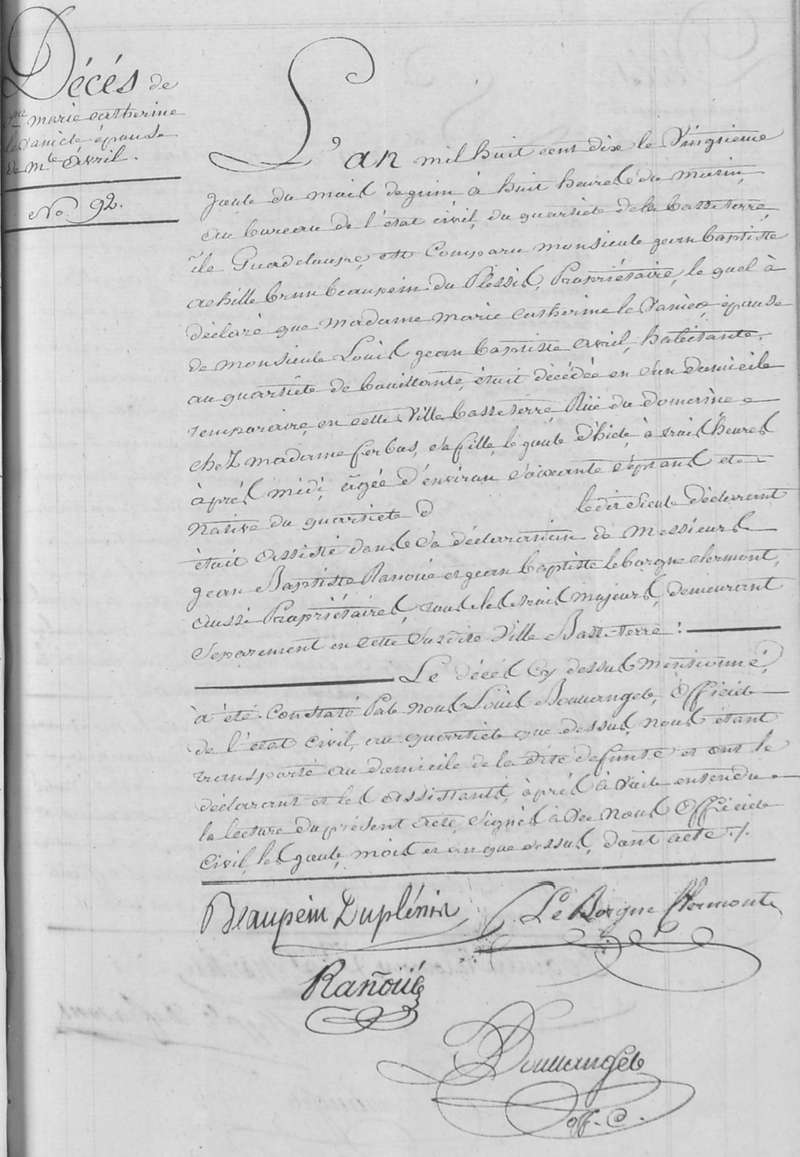 Décés de
marie catherine
épouse
de Mr. Avril.
No. 92.
L'an mil huit cent dix le Vingtieme
jour du mois de juin à huit heures du matin,
au bureau de l'état civil, du quartier de la basseterre,
île Guadeloupe, est comparu monsieur jean baptiste
achille brun beaupein du Plessis, Propriétaire, le quel à
déclaré que madame marie catherine le Vanier, épouse
de monsieur Louis jean baptiste avril, habitante
au quartier de bouillante, était décédée en son domicile
temporaire, en cette Ville basseterre Rüe du domaine
chez madame ferbas, sa fille, le jour d'hier, à trois heures
après midi, âgée d'environ soixante sept ans et
Native du quartier d le dit sieur déclarant
était assisté dans sa déclaration de Messieurs
jean Baptiste Ranoüé et jean baptiste le borgne clermont,
aussi Propriétaires, tous les trois majeurs, demeurant
Separement en cette Susdite Ville Basse-terre :
Le décés Cy dessus mensionné,
à été constaté Par nous Louis Boulangér, Officier
de l'état Civil, au quartier que dessus, nous étant
transporté au domicile de la dite defunte et ont le
déclarant et les assistants, après avoir entendu
la lecture du présent acte, signés avec Nous Officier
Civil, les jour, mois et an que dessus, dont acte ./.
Beaupein Duplénir Le Borgne Clermont
Ranoüé
Boulangér
off. C.